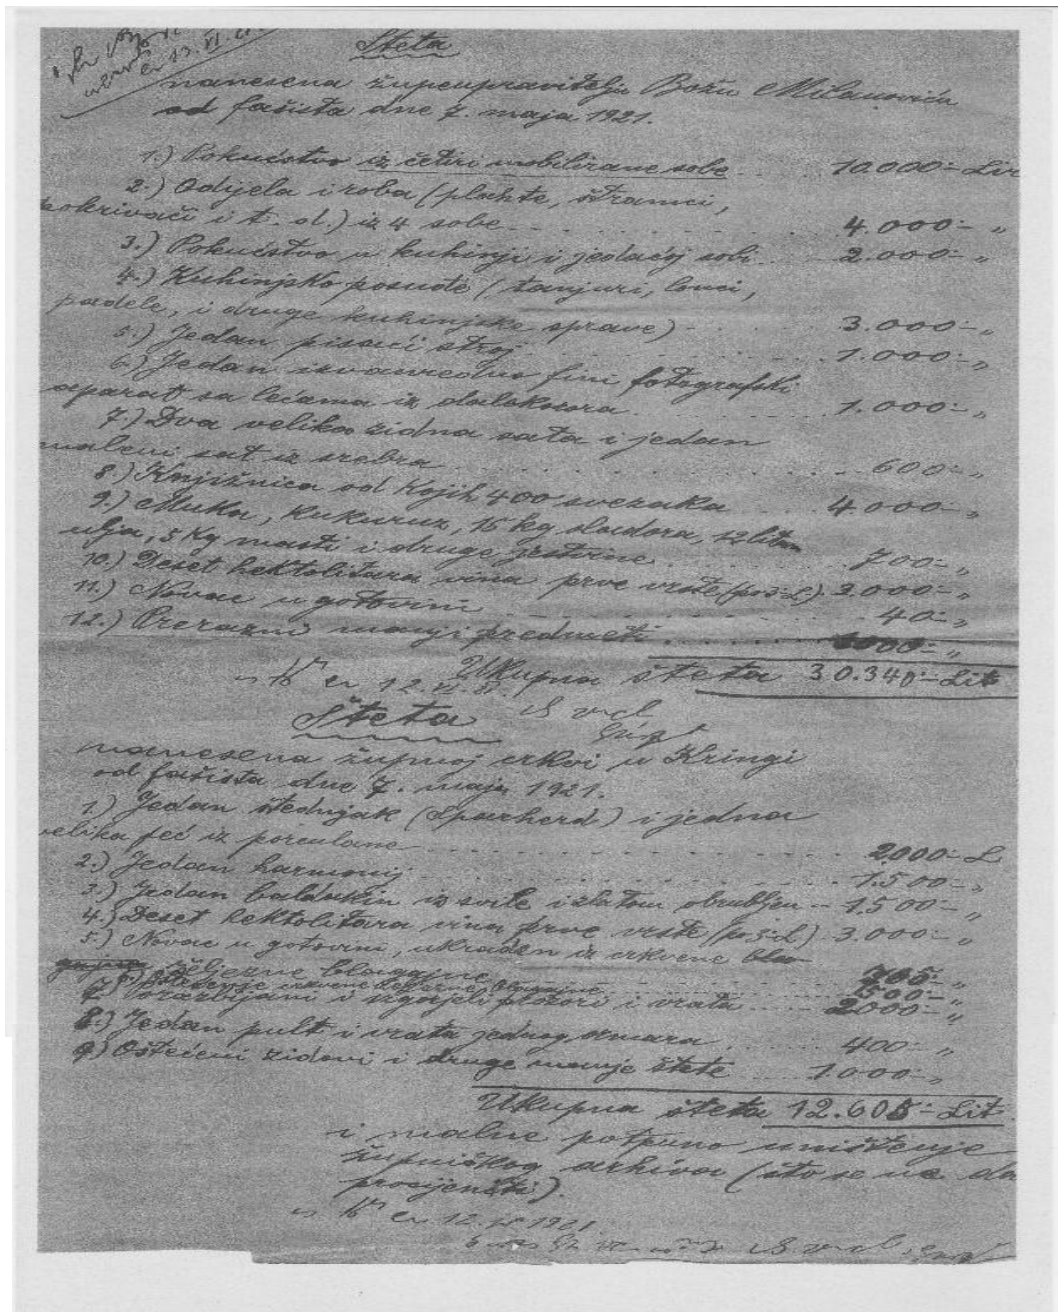 Šteta
nanesena župeupravitelju Božu Milanoviću
od fašista dne 7. maja 1921.
1.) Pokućstvo iz četiri mobilirane sobe 10.000 - Lir
2.) Odijela i roba (plahte, štramci,
pokrivači i t. d.) iz 4 sobe 4.000 - „
3.) Pokućstvo u kuhinji i jedaćoj sobi 2.000 - „
4.) Kuhinjsko posuđe (tanjuri, lonci,
padele, i druge kuhinjske sprave) 3.000 - „
5.) Jedan pisaći stroj 1.000 - „
6.) Jedan izvanredno fini fotografski
aparat sa lećama iz dalekozora 1.000 - „
7.) Dva velika zidna sata i jedan
maleni sat iz srebra 600 - „
8.) Knjižnica od kojih 400 svezaka 4.000 - „
9.) Muka, kukuruz, 15 kg sladora, 12 lit
ulja, 5 kg masti i druge jestvine 700 - „
10.) Deset hektolitara vina prve vrste (po 3 L) 3.000 - „
11.) Novac u gotovini 40 - „
12.) manji predmeti 1000 - „
Ukupna šteta 30.340 - Lit
12. VI.
Šteta
nanesena župnoj crkvi u Kringi
od fašista dne 7. maja 1921.
1.) Jedan štednjak (Sparherd) i jedna
velika peć iz porculane 2000 - L
2.) Jedan harmonij 1.500 - „
3.) Jedan baldakin iz svile i zlatom obrubljen 1.500 - „
4.) Deset hektolitara vina prve vrste (po 3 L) 3.000 - „
5.) Novac u gotovini, ukraden iz crkvene
željezne blagajne 705 - „
6.) crkvene blagajne 500 - „
7. Porazbijani i izgorjeli prozori i vrata 2000 - „
8.) Jedan pult i vrata jednog ormara 400 - „
9.) Oštećeni zidovi i druge manje štete 1000 - „
Ukupna šteta 12.605 - Lit
i malne potpuno uništenje
župničkog arhiva (što se ne da
procijeniti).
12. VI 1921